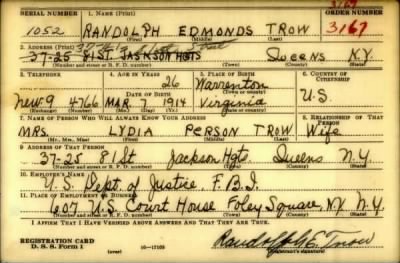 3167
SERIAL NUMBER 1. NAME (Print) ORDER NUMBER
1052 RANDOLPH EDMONDS TROW 3167
(First) (Middle) (Last)
2. ADDRESS (Print)
37-25 81ST. JACKSON HGTS Queens N.Y.
(Number and street or R. F. D. number) (Town) (County) (State)
3. TELEPHONE 4. AGE IN YEARS 5. PLACE OF BIRTH 6. COUNTRY OF CITIZENSHIP
26 Warrenton
DATE OF BIRTH (Town or county)
New 9 4766 MAR. 7 1914 Virginia U.S.
(Exchange) (Number) (Mo.) (Day) (Yr.) (State or country)
7. NAME OF PERSON WHO WILL ALWAYS KNOW YOUR ADDRESS 8. RELATIONSHIP OF THAT PERSON
MRS. LYDIA PERSON TROW Wife
(Mr., Mrs., Miss) (First) (Middle) (Last)
9. ADDRESS OF THAT PERSON
37-25 81 St Jackson Hgts. Queens N.Y.
(Number and street or R. F. D. number) (Town) (County) (State)
10. EMPLOYER'S NAME
U.S. Dept. of Justice, F.B.I.
11. PLACE OF EMPLOYMENT OR BUSINESS
607 U.S. Court House Foley Square NY N.Y.
(Number and street or R. F. D. number) (Town) (County) (State)
I AFFIRM THAT I HAVE VERIFIED ABOVE ANSWERS AND THAT THEY ARE TRUE.
REGISTRATION CARD
D. S. S. Form 1 (over) 16—17105 Randolph E. Trow